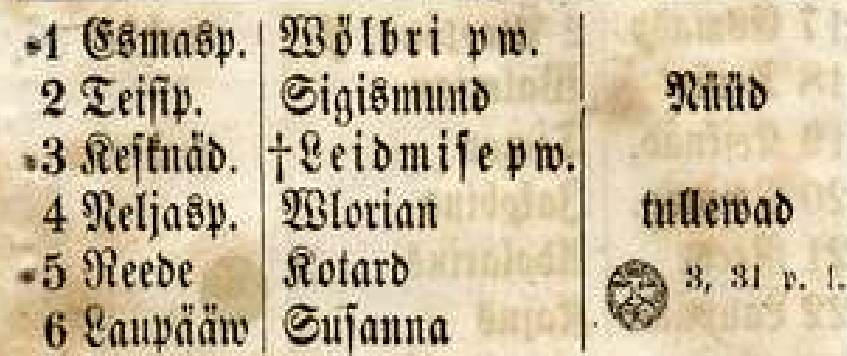 1 Esmasp. Wölbri pw.
2 Teisip. Sigismund Nüüd
3 Kesknäd. †Leidmisepw.
4 Neljasp. Wlorian tullewad
5 Reede Kotard 3, 31 p. l.
6 Laupääw Susanna